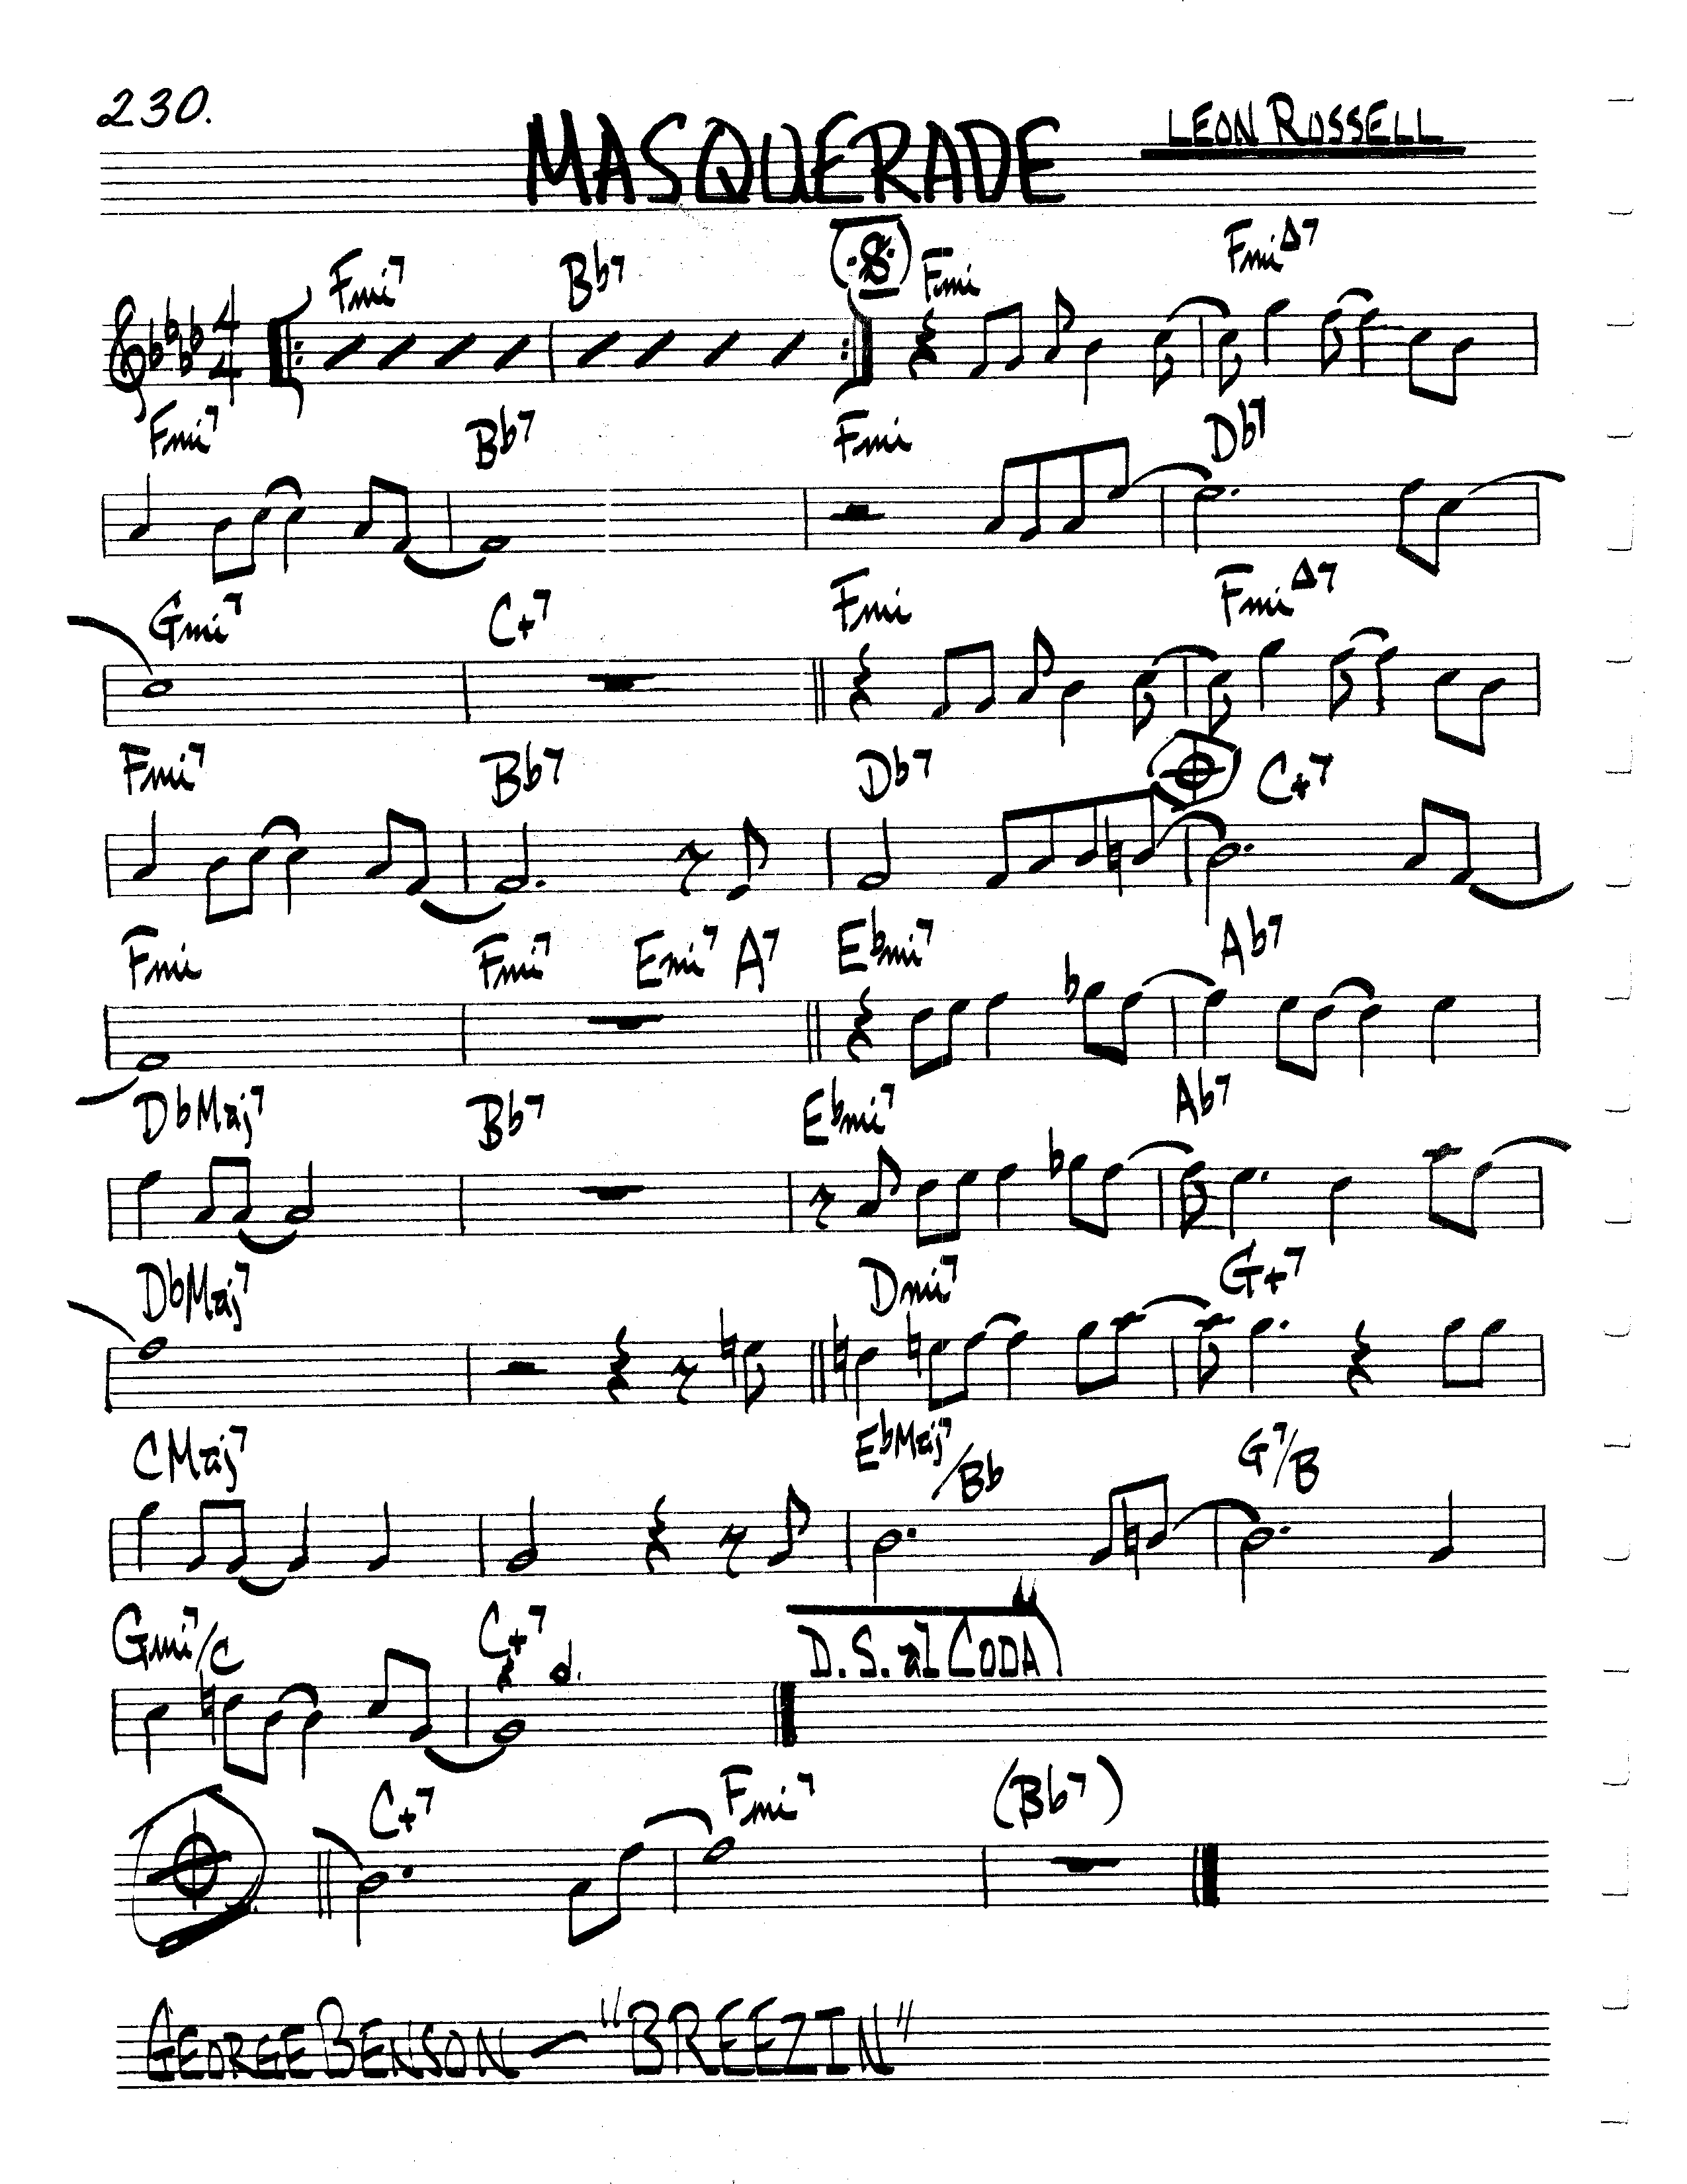 230.
MASQUERADE
LEON RUSSELL
Fmi7 Bb7 Fmi FmiΔ7
4
4
Fmi7 Bb7 Fmi Db7
Gmi7 C+7 Fmi FmiΔ7
Fmi7 Bb7 Db7 C+7
Fmi Fmi7 Emi7 A7 Ebmi7 Ab7
DbMaj7 Bb7 Ebmi7 Ab7
DbMaj7 Dmi7 G+7
CMaj7 EbMaj7/Bb G7/B
Gmi7/C C+7 D.S. al CODA
C+7 Fmi7 (Bb7)
GEORGE BENSON — "BREEZIN"